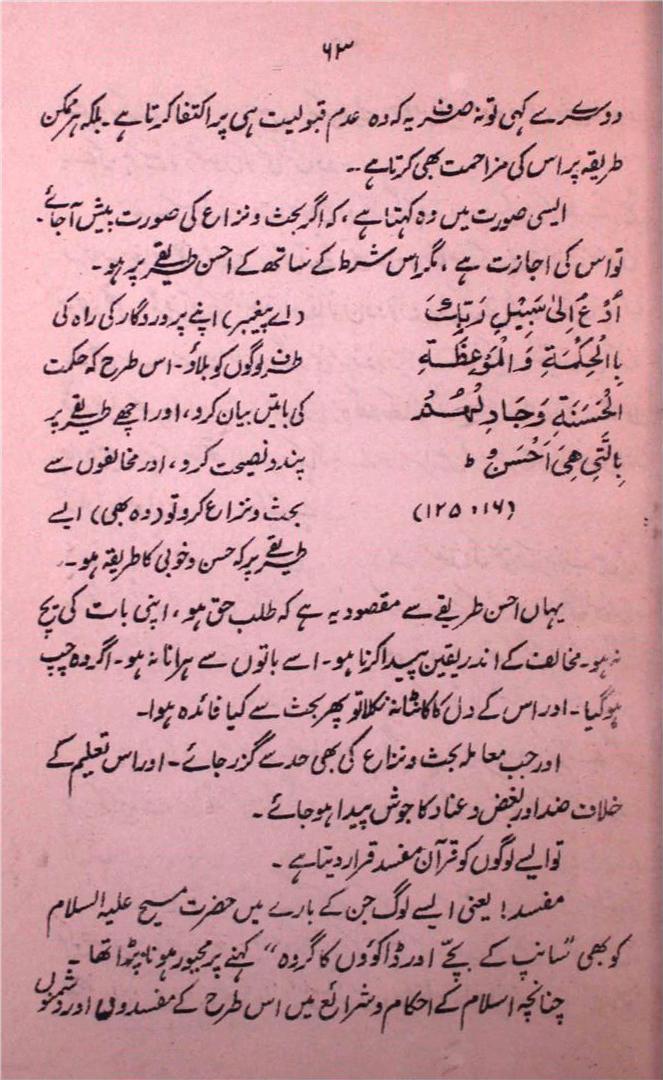 ۶۳
دوسرے کہی تو نہ صرف یہ کہ وہ عدم قبولیت ہی پر اکتفا کرتا ہے ۔ بلکہ ہر ممکن
طریقہ پر اس کی مزاحمت بھی کرتا ہے ۔۔
ایسی صورت میں وہ کہتا ہے ، کہ اگر بحث و نزاع کی صورت پیش آجائے ۔
تو اس کی اجازت ہے ، مگر اس شرط کے ساتھ کے احسن طریقے پر ہو ۔
اُدْعُ اِلیٰ سَبِیْلِ رَبِّكَ
بِاالْحِكْمَةِ وَ الْمَوْعِظَةِ
الْحَسَنَةِ وَجَادِلْهُمْ
بِالَّتِیْ هِیَ اَحْسَنُ ط
(۱۶ : ۱۲۵)
(اے پیغمبر) اپنے پروردگار کی راہ کی
طرف لوگوں کو بلاؤ ۔ اس طرح کہ حکمت
کی باتیں بیان کرو ، اور اچھے طریقے پر
پند و نصیحت کرو ، اور مخالفوں سے
بحث و نزاع کرو تو (وہ بھی) ایسے
طریقے پر کہ حسن و خوبی کا طریقہ ہو ۔
یہاں احسن طریقے سے مقصود یہ ہے کہ طلب حق ہو ، اپنی بات کی پچ
نہ ہو ۔ مخالف کے اندر یقین پیدا کرنا ہو ۔ اسے باتوں سے ہرانا نہ ہو ۔ اگر وہ چپ
ہو گیا ۔ اور اس کے دل کا کانٹا نہ نکلا تو پھر بحث سے کیا فائدہ ہوا ۔
اور جب معاملہ بحث و نزاع کی بھی حد سے گزر جائے ۔ اور اس تعلیم کے
خلاف ضد اور بغض و عناد کا جوش پیدا ہو جائے ۔
تو ایسے لوگوں کو قرآن مفسد قرار دیتا ہے ۔
مفسد ! یعنی ایسے لوگ جن کے بارے میں حضرت مسیح علیہ السلام
کو بھی "سانپ کے بچّے اور ڈاکوؤں کا گروہ" کہنے پر مجبور ہونا پڑا تھا ۔
چنانچہ اسلام کے احکام و شرائع میں اس طرح کے مفسدوں اور دشمنوں